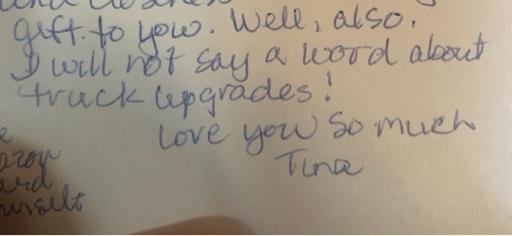 gift to you. Well, also,
I will not say a word about
truck upgrades!
Love you so much
Tina